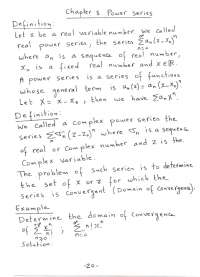 Chapter 3 Power series
Definition:
Let x be a real variable number. We called
real power series, the series ∑_{n≥0} a_n(x-x_0)^n
where a_n is a sequence of real number,
x_0 is a fixed real number and x∈ℝ.
A power series is a series of functions
whose general term is u_n(x) = a_n(x-x_0)^n.
Let X = x-x_0, then we have ∑a_nX^n.
Definition:
We called a complex power series the
series (z-z_0)^n where is a sequence
of real or complex number and z is the
Complex variable.
The problem of such series is to determine
the set of x or z for which the
series is convergent (Domain of convergence).
Example
Determine the domain of convergence
of ∑_{n≥0} ; ∑_{n≥0} n! x^n
Solution
-20-